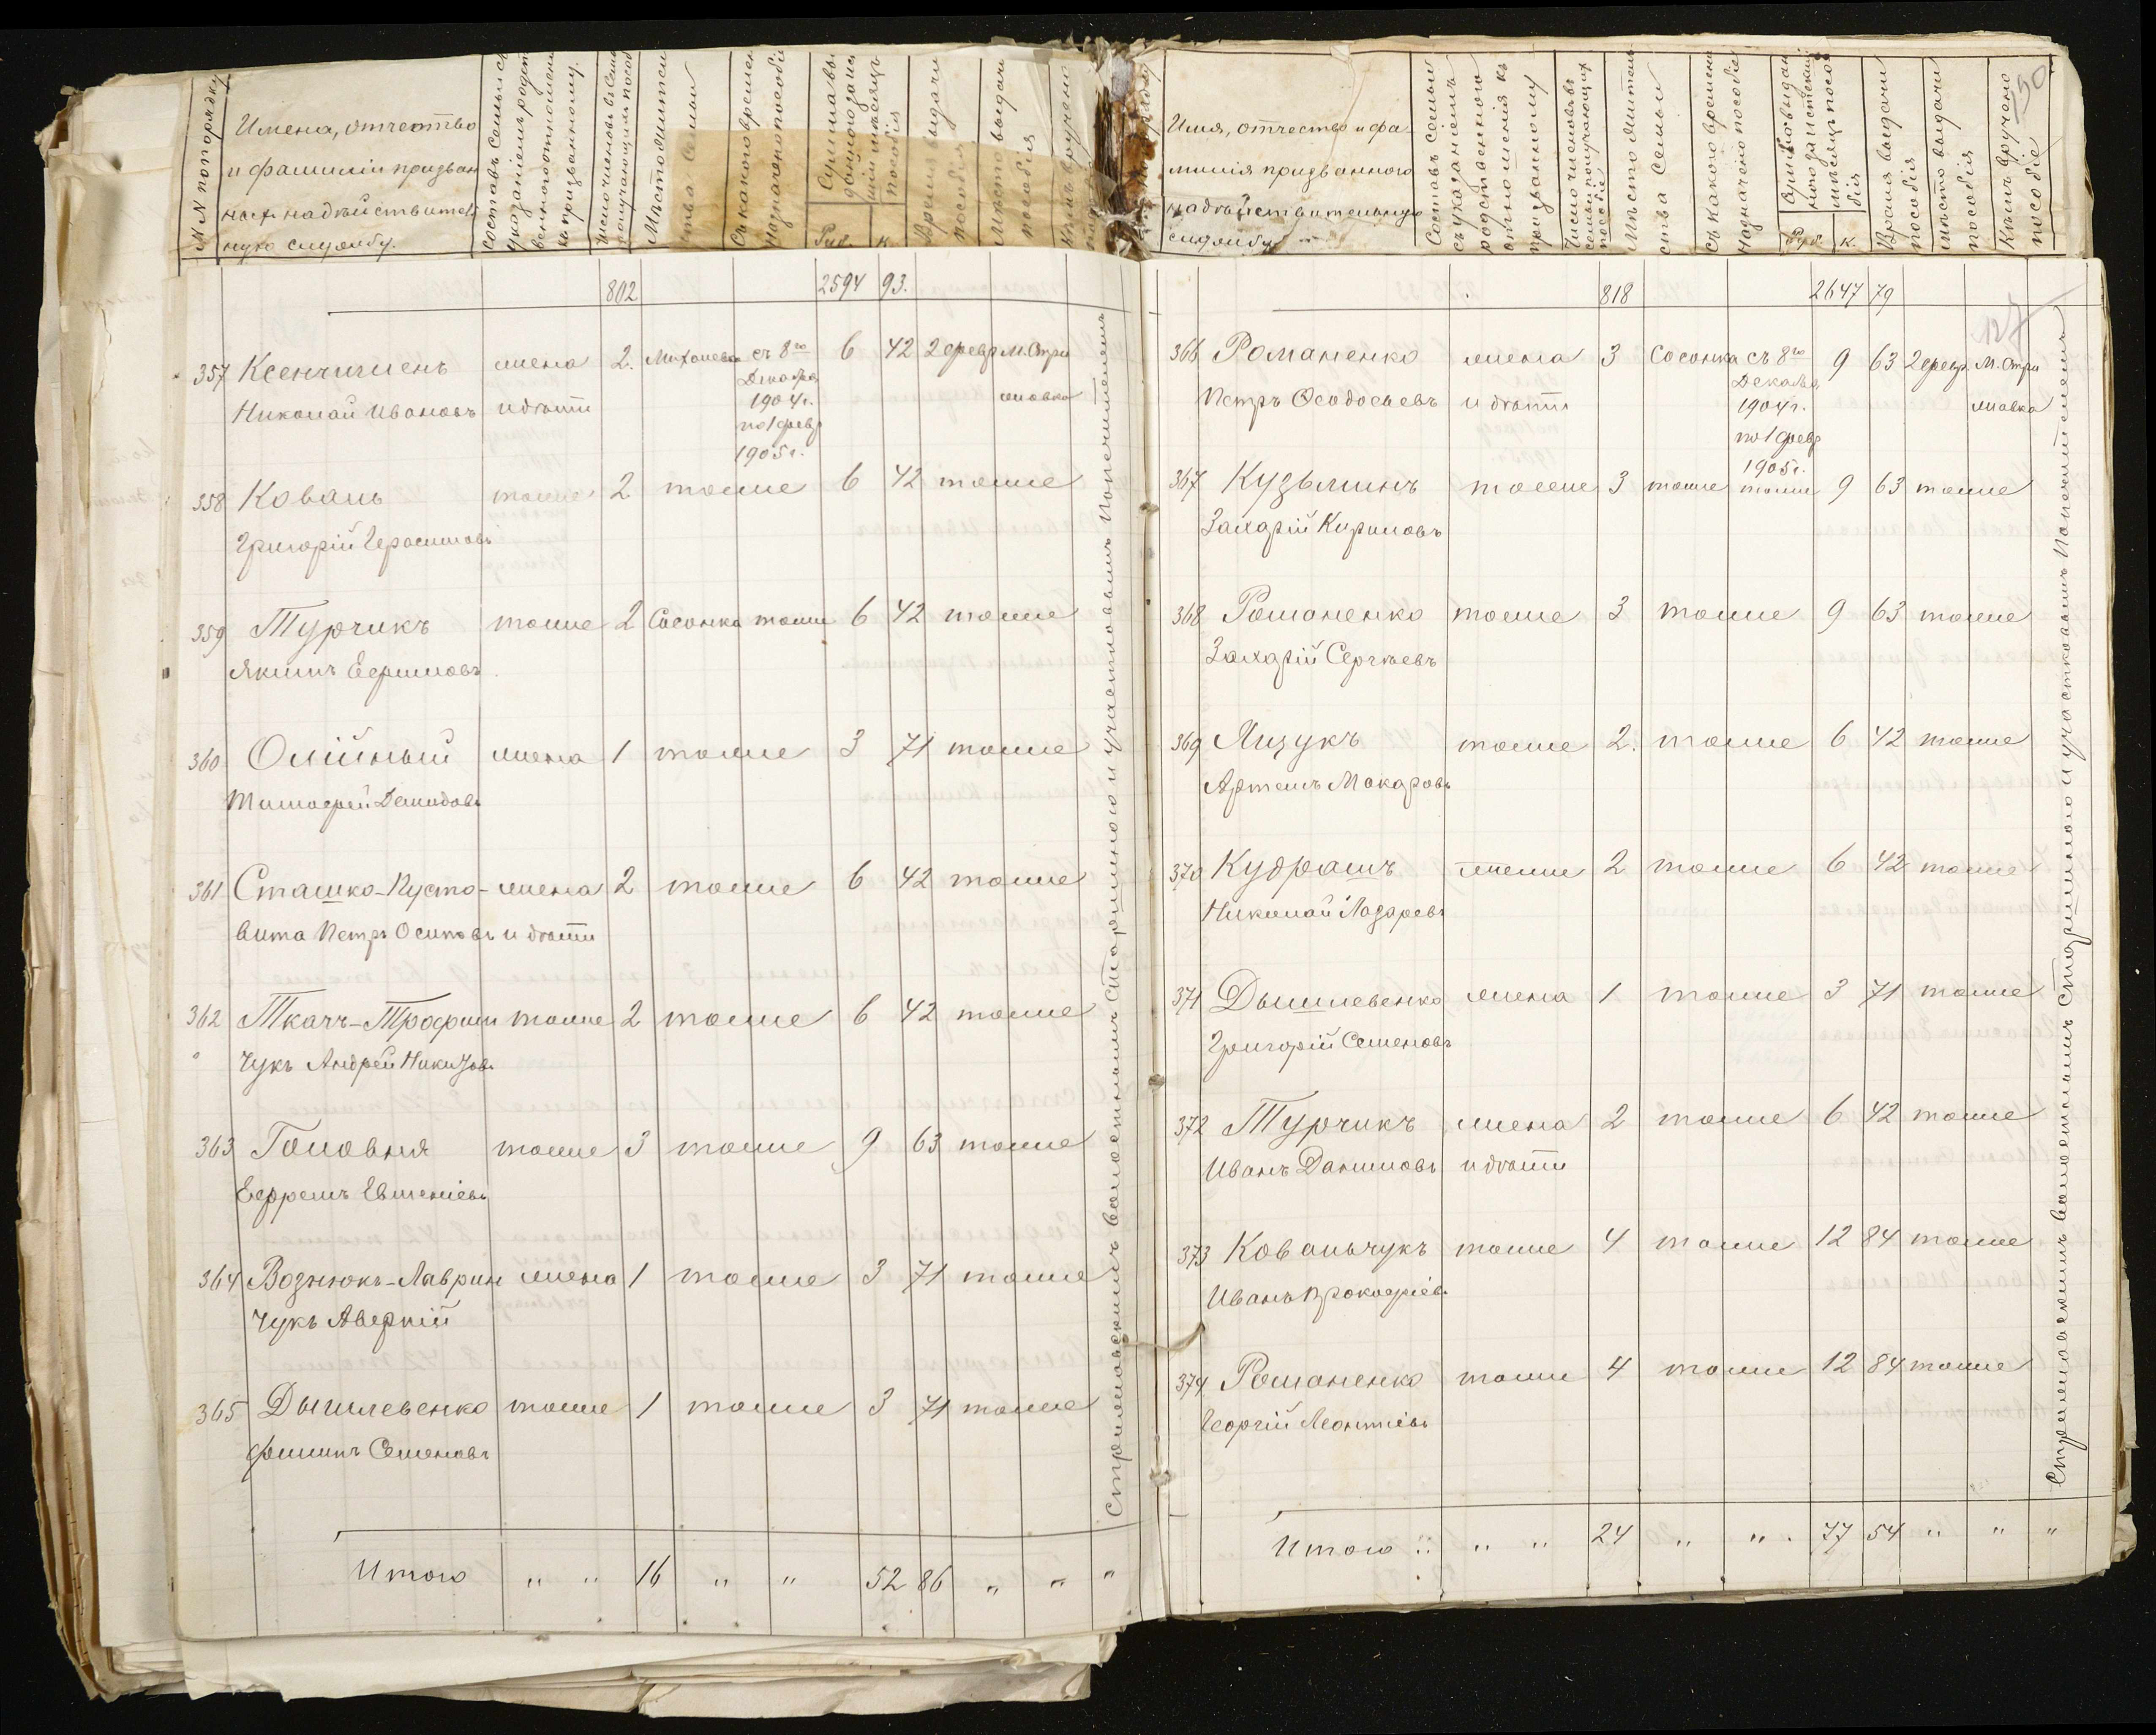 N N по порядку
Имена, отчество
и фамилии призван
ныхъ на дѣйствитель
ную службу.
Составъ семьи съ
указаніемъ родст
веннаго отношенія
къ призванному.
Число членовъ въ семьѣ
получающихъ пособ
Мѣстожитель
ства семьи
Съ какого времен
назначено пособіе
Сумма вы
даннаго за ис
шій мѣсяцъ
пособія
Руб. к.
Время выдачи
пособія
Мѣсто выдачи
пособія
Кѣмъ вручено
802 2594 93.
357 Ксенчишенъ жена 2. Михайловка съ 8го 6 42 2 февр М. Стри
Декабря
Николай Ивановъ и дѣти 1904 г. жовка
по 1 февр
1905 г.
358 Коваль тоже 2 тоже 6 42 тоже
Григорій Герасимовъ
359 Турчикъ тоже 2 Сосонка тоже 6 42 тоже
Якимъ Ефимовъ
360 Олійный жена 1 тоже 3 71 тоже
Тимофей Демидовъ
361 Сташко-Пусто- жена 2 тоже 6 42 тоже
вита Петръ Осиповъ и дѣти
362 Ткачъ-Трофим тоже 2 тоже 6 42 тоже
чукъ Андрей Никитовъ
363 Головня тоже 3 тоже 9 63 тоже
Ефремъ Евменіевъ
364 Вознюкъ-Лаврин жена 1 тоже 3 71 тоже
чукъ Аверкій
365 Дышлевенко тоже 1 тоже 3 71 тоже
Филипъ Семеновъ
Итого " " 16 " " 52 86 " " "
Стрижавскимъ волостнымъ Старшиною и участковымъ Попечителемъ
Имя, отчество и фа-
милія призваннаго
на дѣйствительную
службу
Составъ семьи
съ указаніемъ
родственнаго
отношенія къ
призванному
Число членовъ въ
семьѣ получающихъ
пособіе
Мѣстожитель
ства семьи
Съ какого времени
назначено пособіе
Сумма выдан
наго за истекшій
мѣсяцъ посо
бія
Руб. к.
Время выдачи
пособія
Мѣсто выдачи
пособія
Кѣмъ вручено
пособіе
150
127
818 2647 79
366 Романенко жена 3 Сосонка съ 8го 9 63 2 февр. М. Стри
Декабря
Петръ Феодосіевъ и дѣти 1904 г. жавка
по 1 февр
1905 г.
367 Кузьминъ тоже 3 тоже тоже 9 63 тоже
Захарій Кириловъ
368 Романенко тоже 3 тоже 9 63 тоже
Захарій Сергѣевъ
369 Лизукъ тоже 2. тоже 6 42 тоже
Артемъ Макаровъ
370 Кудрашъ тоже 2 тоже 6 42 тоже
Николай Лазаревъ
371 Дышлевенко жена 1 тоже 3 71 тоже
Григорій Семеновъ
372 Турчикъ жена 2 тоже 6 42 тоже
Иванъ Даниловъ и дѣти
373 Ковальчукъ тоже 4 тоже 12 84 тоже
Иванъ Прокофіевъ
374 Романенко тоже 4 тоже 12 84 тоже
Георгій Леонтіевъ
Итого " " " 24 " " 77 54 " " "
Стрижавскимъ волостнымъ Старшиною и участковымъ Попечителемъ